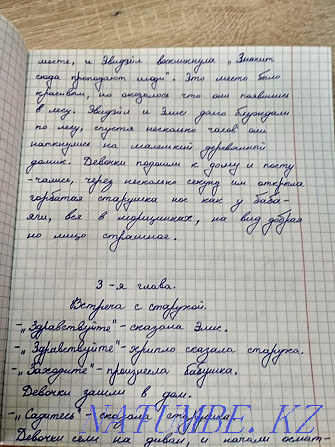 месте, и Эвидзёл воскликнула „Значит
сюда пропадают люди". Это место было
красивым, но оказалось что они появились
в лесу. Эвидзёл и Элис долго блуждали
по лесу, спустя несколько часов они
наткнулись на маленький деревянной
домик. Девочки подошли к дому и посту
-чались, через несколько секунд им открыла
горбатая старушка нос как у баба-
яги, вся в морщинках, на вид добрая
но лицо страшное.
3-я глава.
Встреча с старухой.
-„Здравствуйте"- сказала Элис.
-„Здравствуйте"- хрипло сказала старуха.
-„Заходите"- произнесла бабушка.
Девочки зашли в дом.
-„Садитесь"- сказала старушка.
Девочки сели на диван, и начали осмат-
NAFUMBE.KZ